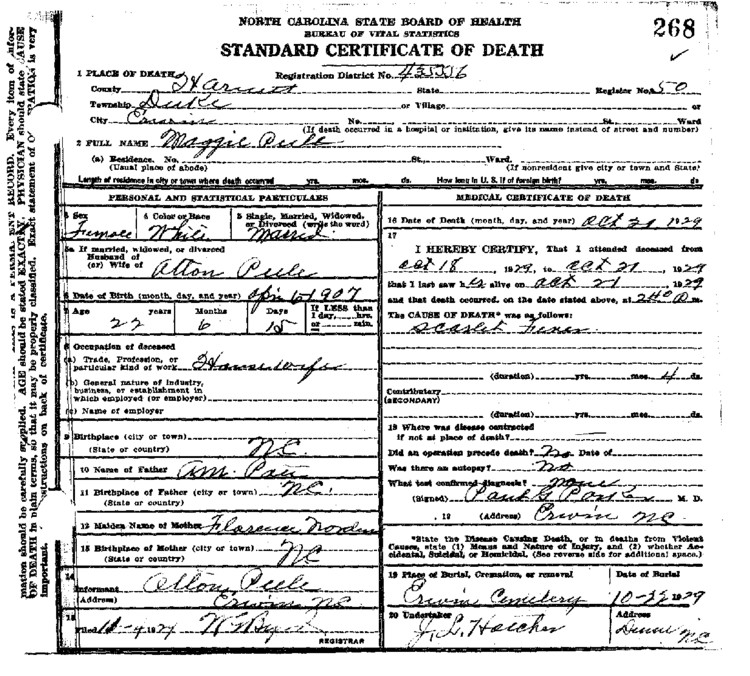 NORTH CAROLINA STATE BOARD OF HEALTH
BUREAU OF VITAL STATISTICS
STANDARD CERTIFICATE OF DEATH
268
1 PLACE OF DEATH
Registration District No.
County Harnett State Register No. 50
Township Duke or Village or
City No. St. Ward
(If death occurred in a hospital or institution, give its name instead of street and number)
2 FULL NAME Maggie Peele
(a) Residence. No. St., Ward.
(Usual place of abode) (If nonresident give city or town and State)
Length of residence in city or town where death occurred yrs. mos. ds. How long in U. S. if of foreign birth? yrs. mos. ds
PERSONAL AND STATISTICAL PARTICULARS
3 Sex
Female
4 Color or Race
White
5 Single, Married, Widowed, or Divorced (write the word)
Married
5a If married, widowed, or divorced
Husband of
(or) Wife of Alton Peele
6 Date of Birth (month, day, and year) Apr 6 1907
7 Age years Months Days If LESS than
1 day, hrs.
or min.
22 6 15
8 Occupation of deceased
(a) Trade, Profession, or
particular kind of work Housewife
(b) General nature of industry,
business, or establishment in
which employed (or employer)
(c) Name of employer
9 Birthplace (city or town)
(State or country) NC
10 Name of Father
11 Birthplace of Father (city or town) NC.
(State or country)
12 Maiden Name of Mother Florence
13 Birthplace of Mother (city or town)
(State or country) NC
14
Informant Alton Peele
(Address) Erwin NC
15
Filed 1929
REGISTRAR
MEDICAL CERTIFICATE OF DEATH
16 Date of Death (month, day, and year) Oct 21 1929
17
I HEREBY CERTIFY, That I attended deceased from
Oct 18, 1929, to Oct 21, 1929
that I last saw her alive on Oct 21, 1929
and that death occurred, on the date stated above, at 2 40 m.
The CAUSE OF DEATH* was as follows:
Scarlet Fever
(duration) yrs. mos. 4 ds.
Contributary
(SECONDARY)
(duration) yrs. mos. ds.
18 Where was disease contracted
if not at place of death?
Did an operation precede death? No Date of
Was there an autopsy? no
What test confirmed diagnosis? none
(Signed) Paul G M. D.
, 19 (Address) Erwin NC.
*State the Disease Causing Death, or in deaths from Violent
Causes, state (1) Means and Nature of Injury, and (2) whether Ac-
cidental, Suicidal, or Homicidal. (See reverse side for additional space.)
19 Place of Burial, Cremation, or removal
Erwin Cemetery
Date of Burial
10-22 1929
20 Undertaker
J. L. Hatcher
Address
Dunn NC
mation should be carefully supplied. AGE should be stated EXACTLY. PHYSICIAN should state CAUSE
OF DEATH in plain terms, so that it may be properly classified. Exact statement of is very
important. on back of certificate.